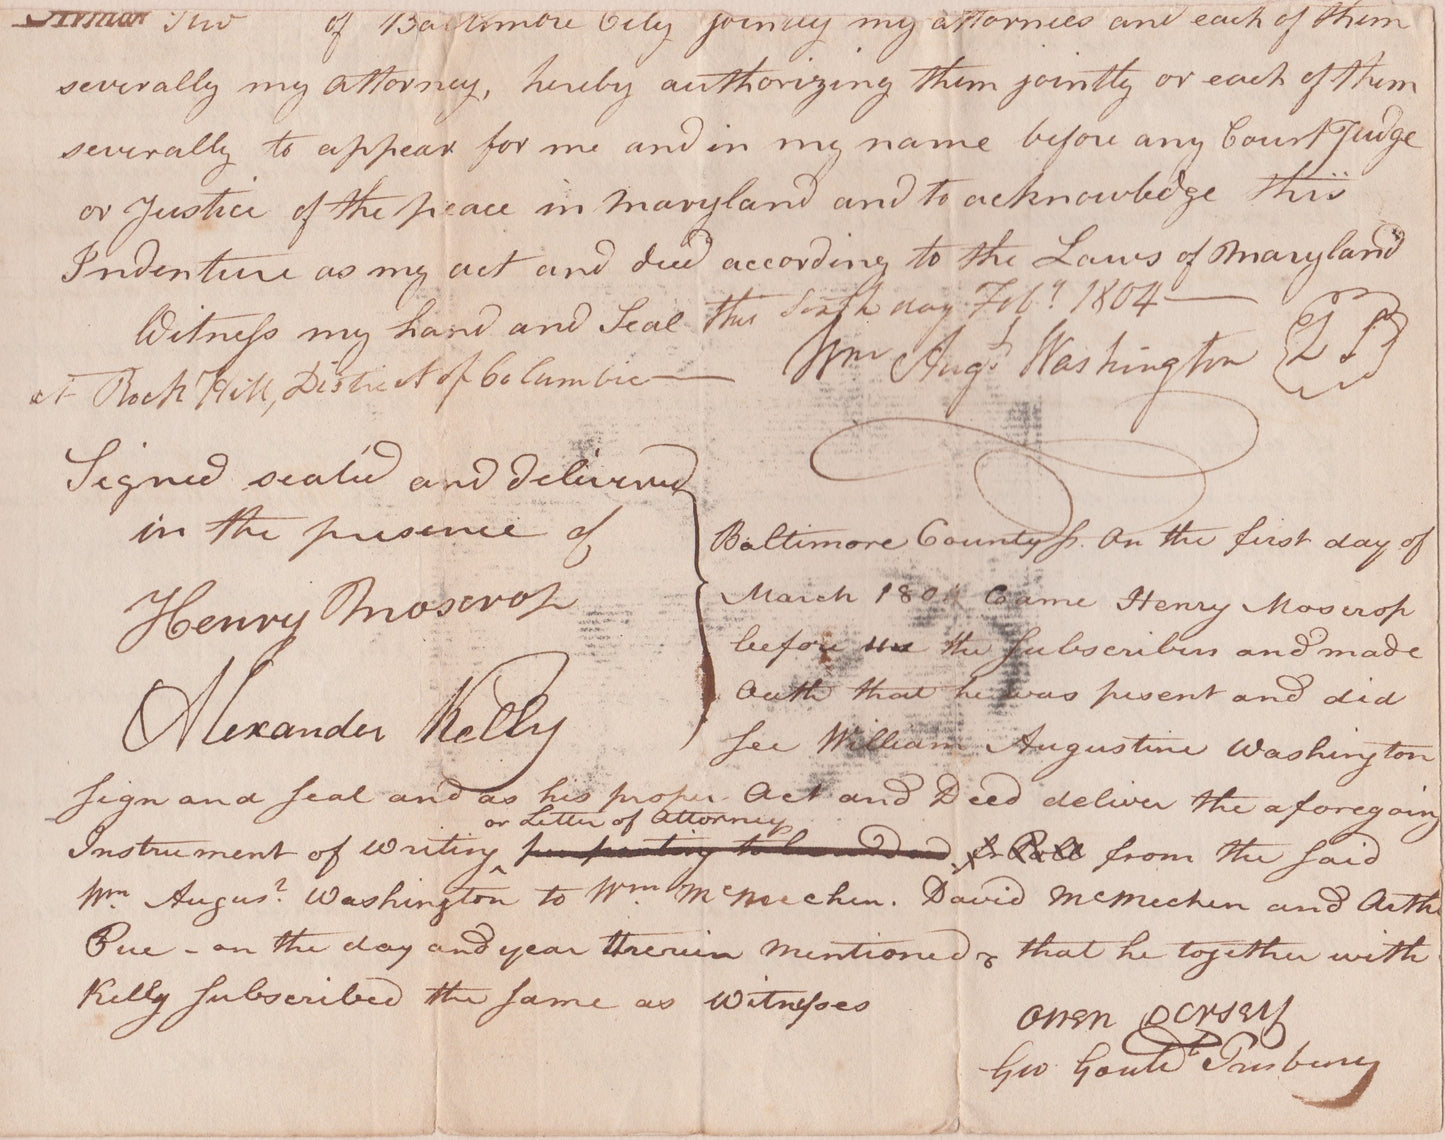 of Baltimore City jointly my attornies and each of them
severally my attorney, hereby authorizing them jointly or each of them
severally to appear for me and in my name before any Court Judge
or Justice of the peace in Maryland and to acknowledge this
Indenture as my act and deed according to the Laws of Maryland
Witness my hand and Seal this Sixth day Feby. 1804
at Rock Hill, District of Columbia
Wm Augs. Washington
Signed seal'd and delivered
in the presence of
Henry Moscrop
Alexander Kelly
Baltimore County ss. On the first day of
March 180 Came Henry Moscrop
before the Subscribers and made
Oath that he was present and did
See William Augustine Washington
Sign and Seal and as his proper Act and Deed deliver the aforegoing
or Letter of Attorney
Instrument of writing from the Said
Wm. Augus. Washington to Wm McMechen. David McMechen and
on the day and year therein mentioned & that he together with
Kelly Subscribed the Same as Witnesses
Owen Dorsey
Geo Gould Presbury